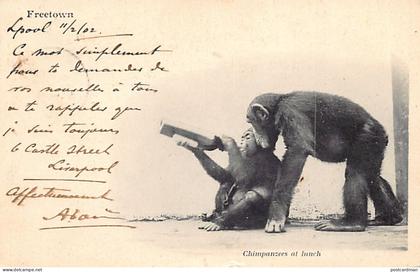 Freetown
Lpool 11/2/02.
Ce mot simplement
pour te demander de
vos nouvelles à tous
et te rappeler que
je suis toujours
6 Castle Street
Liverpool
Affectueusement
Chimpanzees at lunch
postcardman